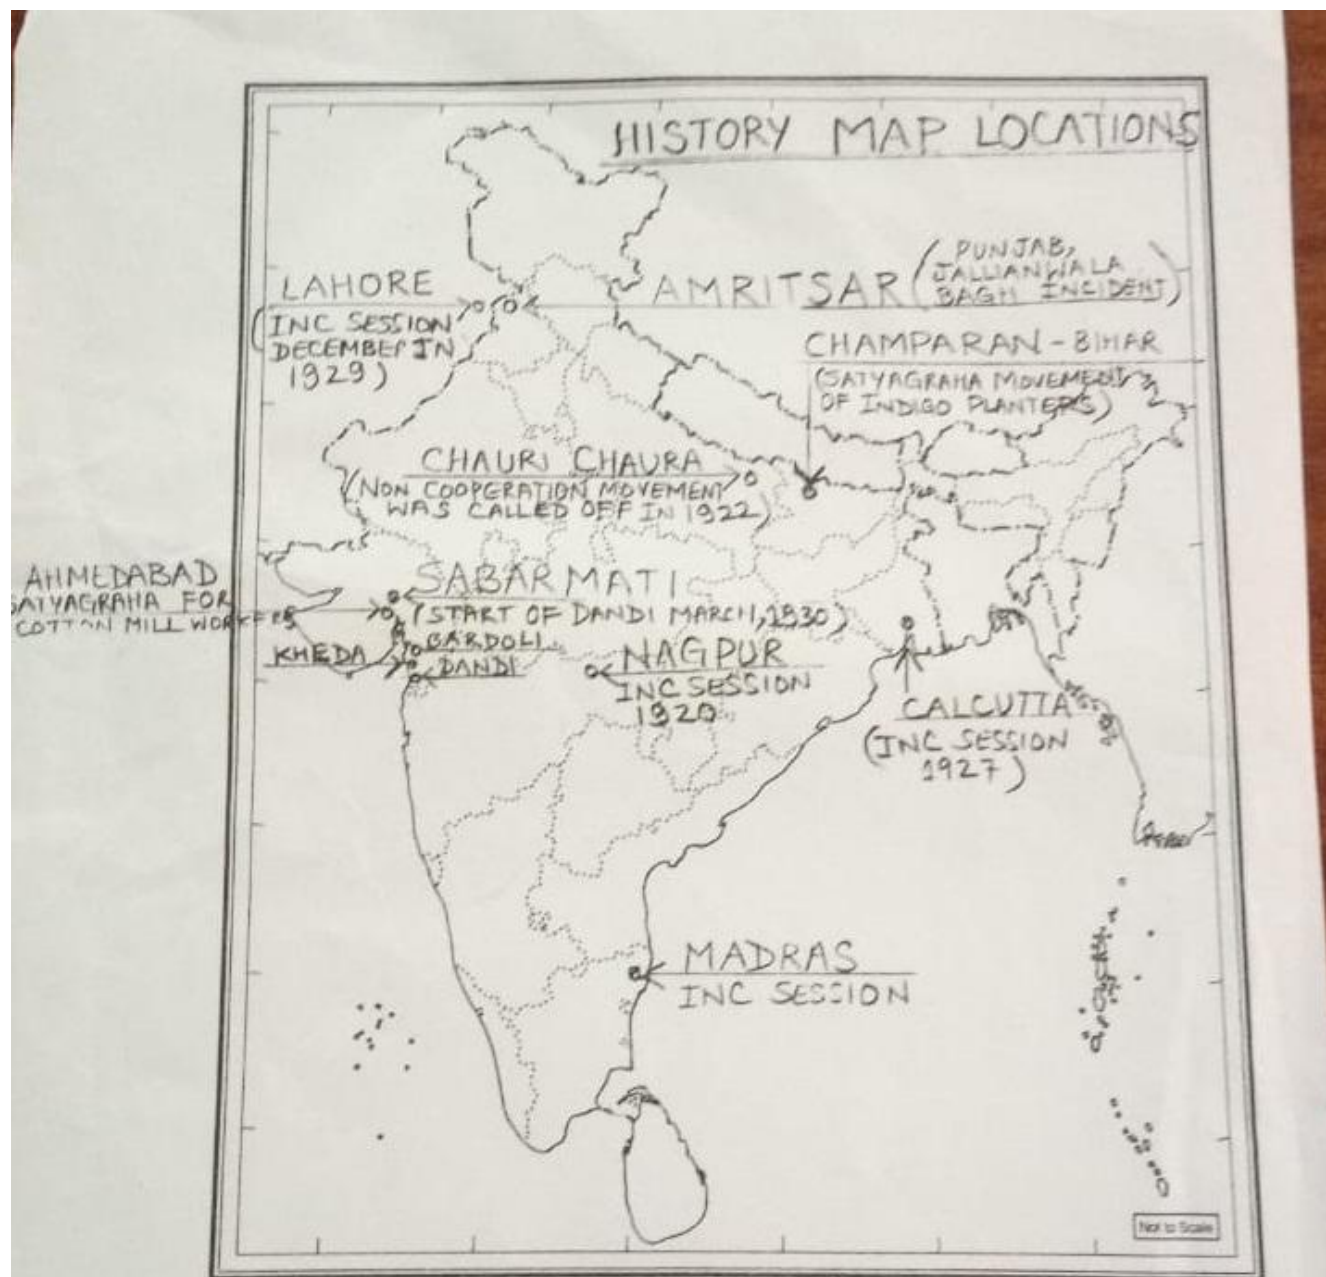 HISTORY MAP LOCATIONS
LAHORE
(INC SESSION
DECEMBER IN
1929)
AMRITSAR (PUNJAB,
JALLIANWALA
BAGH INCIDENT)
CHAMPARAN - BIHAR
(SATYAGRAHA MOVEMENT
OF INDIGO PLANTERS)
CHAURI CHAURA
(NON COOPERATION MOVEMENT
WAS CALLED OFF IN 1922)
AHMEDABAD
SATYAGRAHA FOR
COTTON MILL WORKERS
SABARMATI
(START OF DANDI MARCH, 1930)
BARDOLI
KHEDA
DANDI
NAGPUR
INC SESSION
1920
CALCUTTA
(INC SESSION
1927)
MADRAS
INC SESSION
Not to Scale